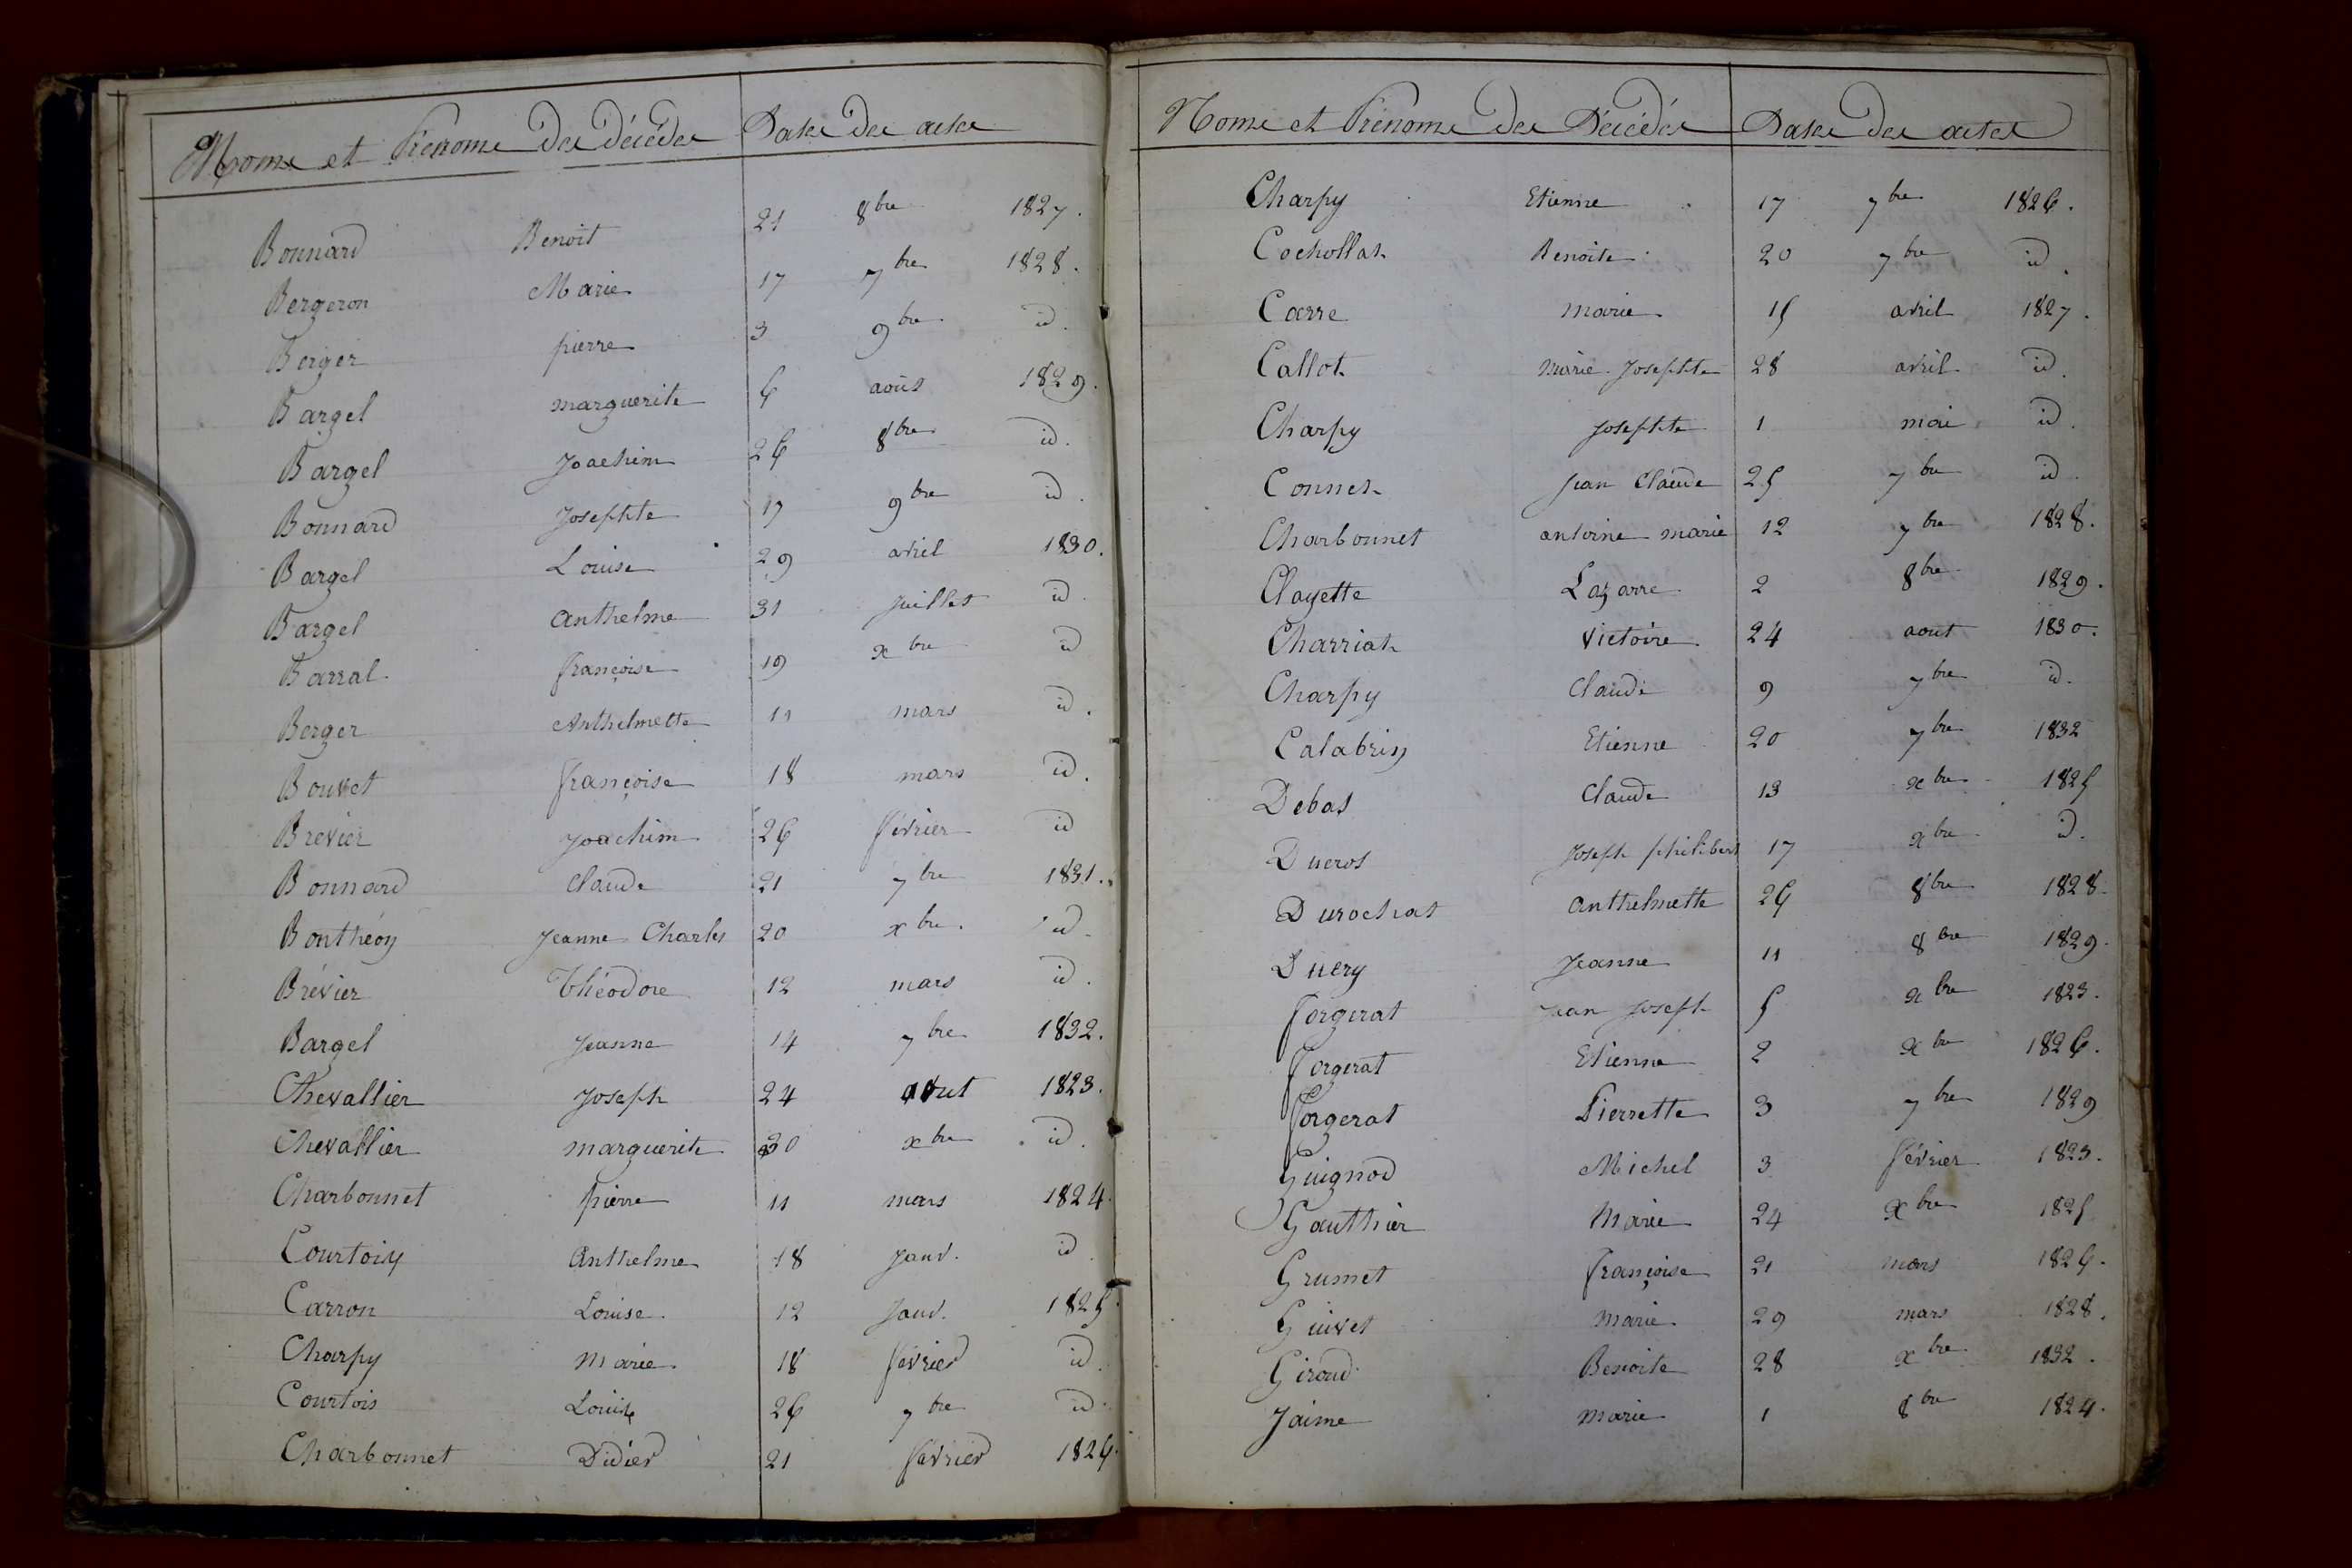 Noms et Prénoms des décédés Dates des actes
Bonnard Benoit 21 8bre 1827.
Bergeron Marie 17 7bre 1828.
Berger pierre 3 9bre id.
Bargel marguerite 6 août 1829.
Bargel Joachim 26 8bre id.
Bonnard Josephte 17 9bre id.
Bargel Louise 29 avril 1830.
Bargel anthelme 31 Juillet id.
Barral françoise 19 xbre id
Berger Anthelmette 11 mars id.
Bouvet françoise 18 mars id.
Brevier Joachim 26 février id
Bonnard claude 21 7bre 1831.
Bonthéoy Jeanne Charles 20 xbre. id.
Brévier Théodore 12 mars id.
Bargel Jeanne 14 7bre 1832.
Chevallier Joseph 24 aout 1823.
Chevallier marguerite 30 xbre id.
Charbonnet pierre 11 mars 1824.
Courtois Anthelme 18 Janv. id
Carron Louise. 12 Janv. 1825.
Charpy Marie. 18 février id.
Courtois Louise 26 7bre id.
Charbonnet Didier 21 février 1826.
Noms et Prénoms des Décédés Dates des actes
Charpy Etienne 17 7bre 1826.
Cochollat Benoite 20 7bre id.
Carre marie 15 avril 1827.
Callot marie Josephte 28 avril id.
Charpy Josephte 1 mai id.
Connet Jean Claude 25 7bre id.
Charbonnet antoine marie 12 7bre 1828.
Clayette Lazarre 2 8bre 1829.
Charriat Victoire 24 aout 1830.
Charpy Claude 9 7bre id.
Calabrin Etienne 20 7bre 1832
Debas Claude 13 xbre 1825
Ducros Joseph philibert 17 xbre id.
Durochat anthelmette 26 8bre 1828.
Duery Jeanne 11 8bre 1829.
forgerat Jean Joseph 5 xbre 1823.
forgerat Etienne 2 xbre 1826.
forgerat Pierrette 3 7bre 1829
Guignod Michel 3 février 1823.
Gauthier Marie 24 xbre 1825
Grumet françoise 21 mars 1826.
Guivet marie 29 mars 1828.
Giroud Benoite 28 xbre 1832.
Jaime marie 1 8bre 1824.